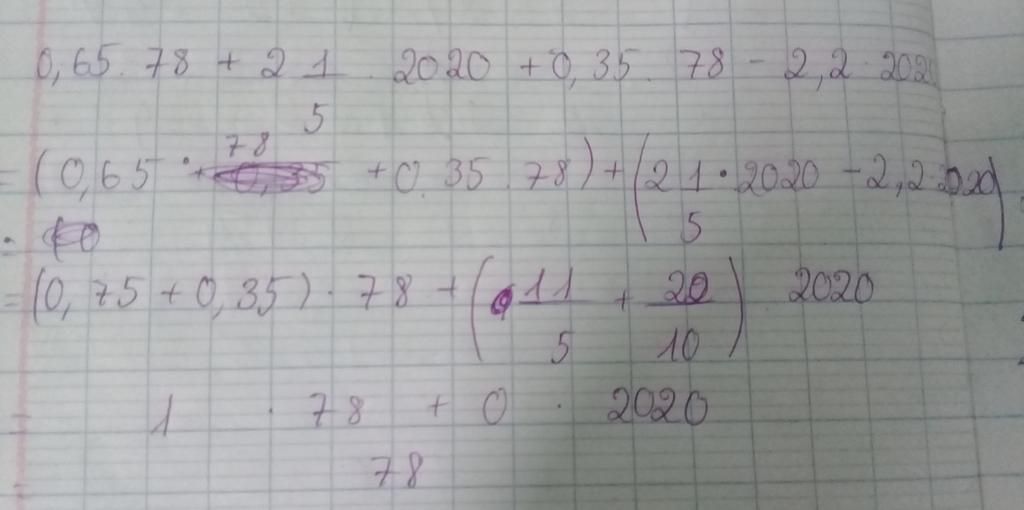 0,65 . 78 + 2 1/5 . 2020 + 0,35 . 78 - 2,2 . 2020
= (0,65 . 78 + 0.35 . 78) + (2 1/5 . 2020 - 2,2 2020)
= (0,75 + 0,35) . 78 + (11/5 + 20/10) 2020
= 1 . 78 + 0 . 2020
78